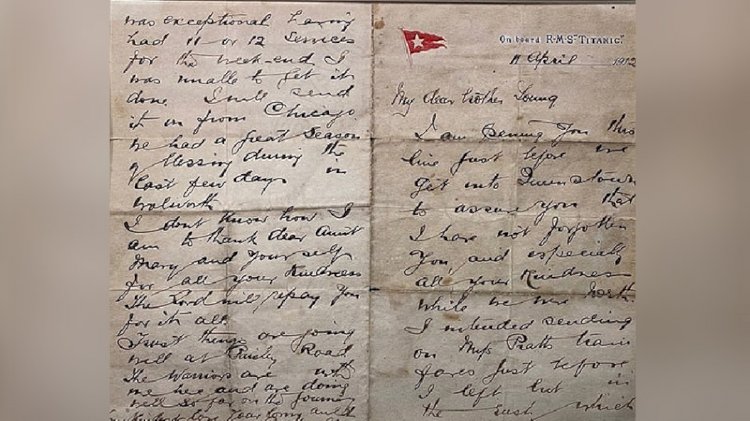 On board R.M.S "TITANIC."
11 April 1912
My dear brother Young
I am penning you this
line just before we
get into Queenstown
to assure you that
I have not forgotten
you, and especially
all your kindness
while we were North
I intended sending
on Miss Pratts train
fares just before
I left but in
the rush which
was exceptional having
had 11 or 12 services
for the week-end I
was unable to get it
done I will send
it on from Chicago
we had a great season
of blessing during the
last few days in
Walworth
I dont know how I
am to thank dear Aunt
Mary and yourself
for all your kindness
The Lord will repay you
for it all.
Trust things are going
well at Paisley Road
The Warriors are with
me here and are doing
well so far on the journey
love